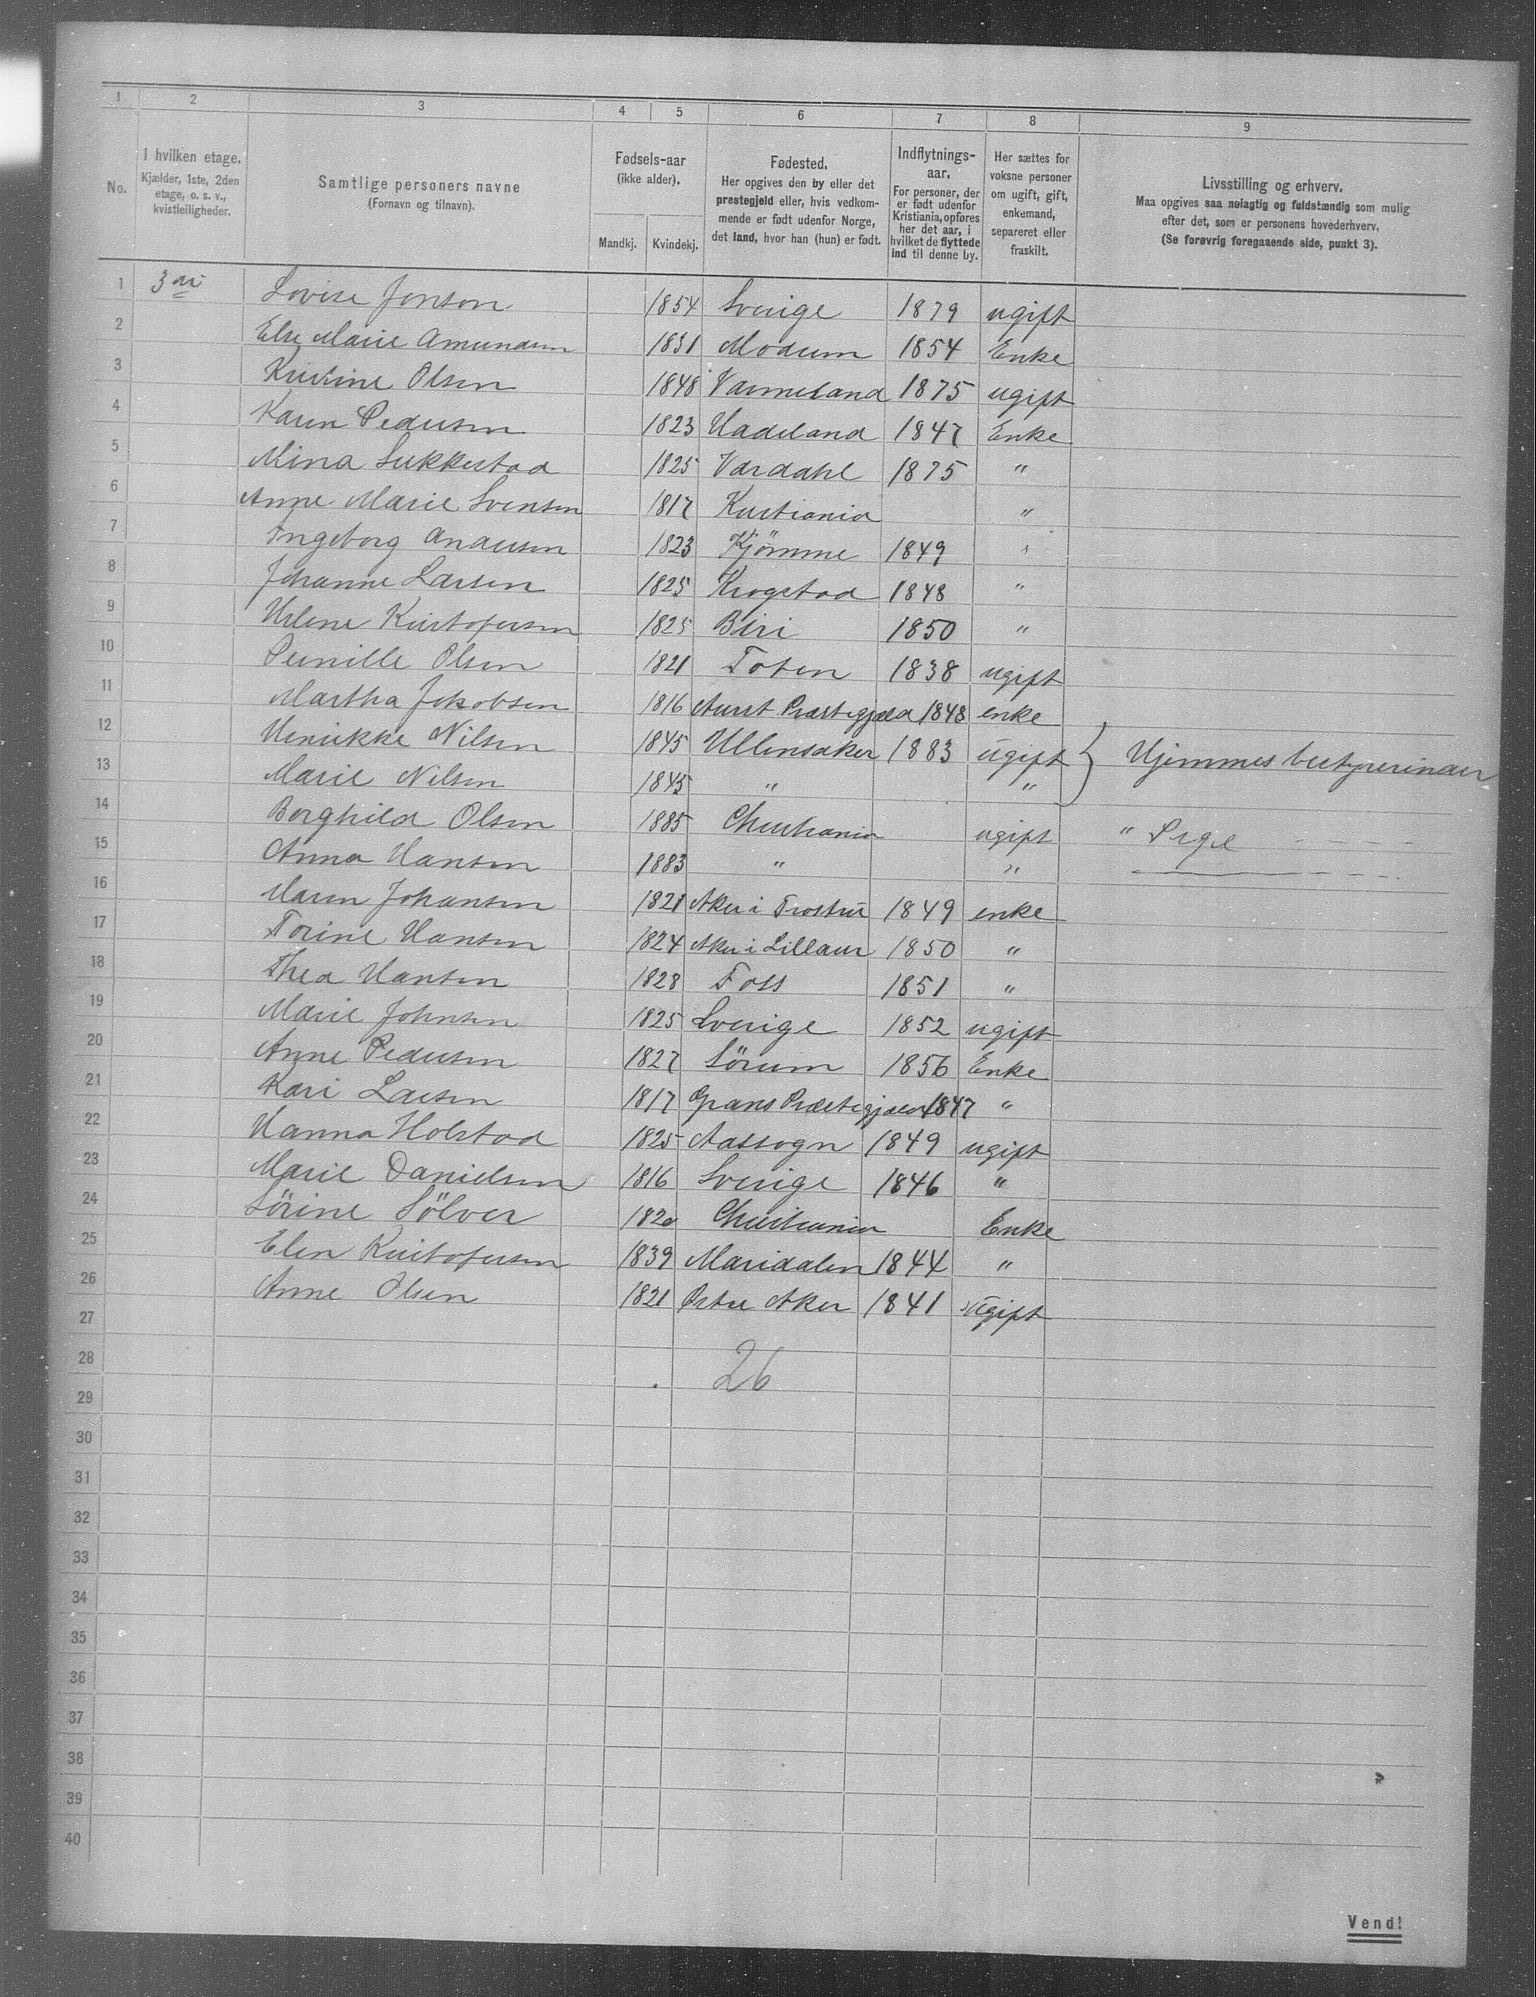 1 2 3 4 5 6 7 8 9
No.
I hvilken etage.
Kjælder, 1ste, 2den
etage, o. s. v.,
kvistleiligheder.
Samtlige personers navne
(Fornavn og tilnavn).
Fødsels-aar
(ikke alder).
Mandkj. Kvindekj.
Fødested.
Her opgives den by eller det
prestegjeld eller, hvis vedkom-
mende er født udenfor Norge,
det land, hvor han (hun) er født.
Indflytnings-
aar.
For personer, der
er født udenfor
Kristiania, opføres
her det aar, i
hvilket de flyttede
ind til denne by.
Her sættes for
voksne personer
om ugift, gift,
enkemand,
separeret eller
fraskilt.
Livsstilling og erhverv.
Maa opgives saa nøiagtig og fuldstændig som mulig
efter det, som er personens hovederhverv.
(Se forøvrig foregaaende side, punkt 3).
1 Lovise Jonson 1854 Sverige 1879 ugift
2 Else Marie Amundsen 1831 Modum 1854 Enke
3 Kristine Olsen 1848 Varmeland 1875 ugift
4 Karen Pedersen 1823 Hadeland 1847 Enke
5 Mina Sukkestad 1825 Vardahl 1875 "
6 Anne Marie Svensen 1817 Kristiania "
7 Ingeborg Andersen 1823 Kjömme 1849 "
8 Johanne Larsen 1825 Krogstad 1848 "
9 Helene Kristofersen 1825 Biri 1850 "
10 Pernille Olsen 1821 Toten 1838 ugift
11 Martha Jakobsen 1816 Aurst Præstegjæld 1848 enke
12 Henrikke Nilsen 1845 Ullensaker 1883 ugift } Hjemmes bestyrerinder
13 Marie Nilsen 1845 " "
14 Borghild Olsen 1885 Christiania ugift " Pige
15 Anna Hansen 1883 " "
16 Maren Johansen 1821 Aker i 1849 enke
17 Torine Hansen 1824 Aker i 1850 "
18 Thea Hansen 1828 Foss 1851 "
19 Marie Johnsen 1825 Sverige 1852 ugift
20 Anne Pedersen 1827 Sörum 1856 Enke
21 Kari Larsen 1817 Grans Præstegjæld 1847 "
22 Hanna Holstad 1825 Aassogn 1849 ugift
23 Marie Danielsen 1816 Sverige 1846 "
24 Sörine Sölver 1820 Christiania Enke
25 Elen Kristofersen 1839 Maridalen 1844 "
26 Anne Olsen 1821 Østre Aker 1841 ugift
27
28 26
29
30
31
32
33
34
35
36
37
38
39
40
Vend!